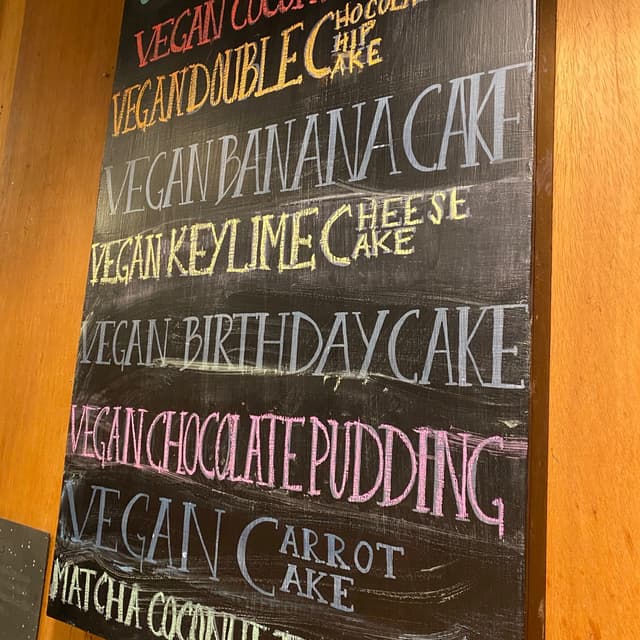 VEGAN
VEGAN DOUBLE CHOCOLATE CHIP CAKE
VEGAN BANANA CAKE
VEGAN KEY LIME CHEESE CAKE
VEGAN BIRTHDAY CAKE
VEGAN CHOCOLATE PUDDING
VEGAN CARROT CAKE
MATCHA COCONUT